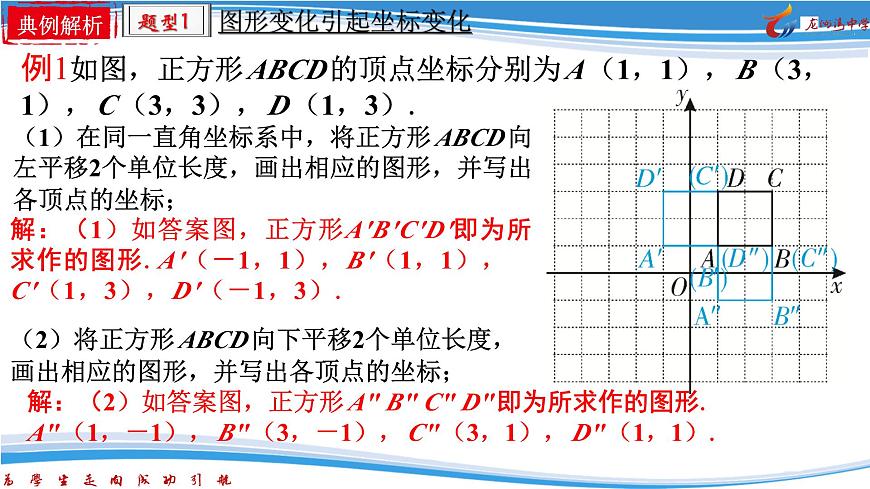 典例解析 题型1 图形变化引起坐标变化
龙湖湾中学
例1如图，正方形ABCD的顶点坐标分别为A（1，1），B（3，
1），C（3，3），D（1，3）.
（1）在同一直角坐标系中，将正方形ABCD向
左平移2个单位长度，画出相应的图形，并写出
各顶点的坐标；
解：（1）如答案图，正方形A′B′C′D′即为所
求作的图形. A′（－1，1），B′（1，1），
C′（1，3），D′（－1，3）.
（2）将正方形ABCD向下平移2个单位长度，
画出相应的图形，并写出各顶点的坐标；
解：（2）如答案图，正方形A″ B″ C″ D″即为所求作的图形.
A″（1，－1），B″（3，－1），C″（3，1），D″（1，1）.
y
D′ (C′) D C
A′ A (D″) B (C″)
O (B′) x
A″ B″
为 学 生 走 向 成 功 引 航